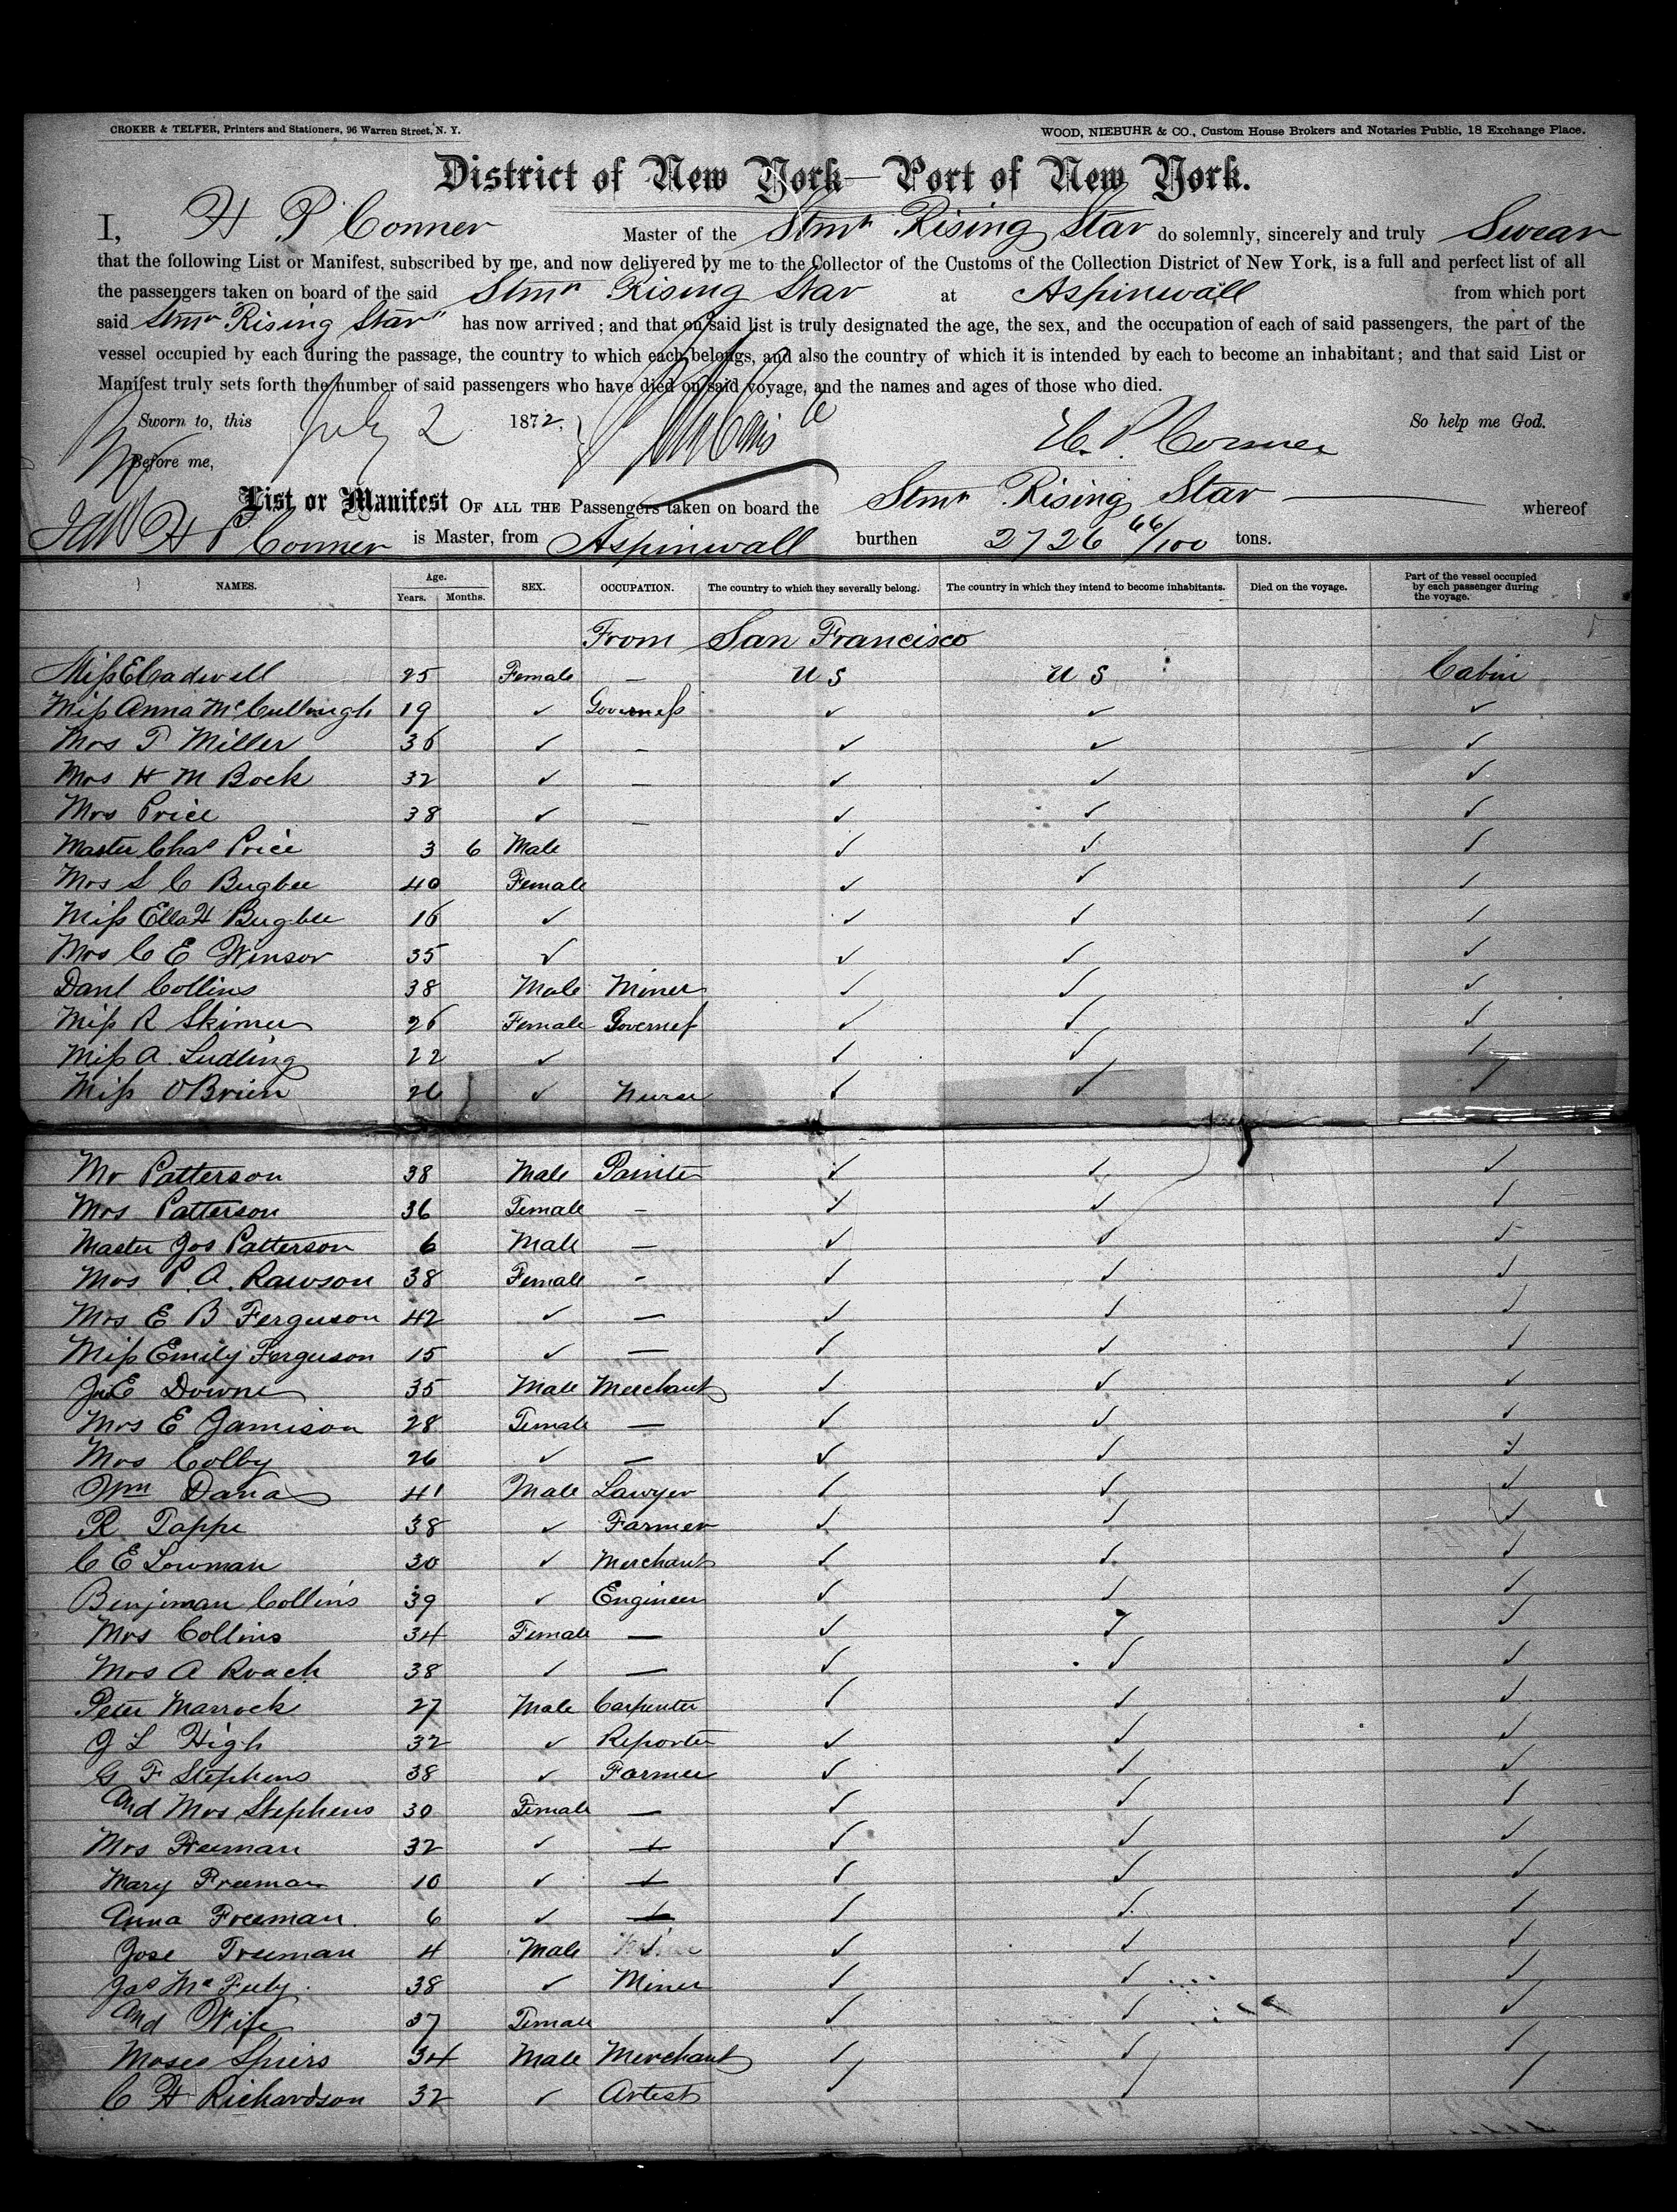 CROKER & TELFER, Printers and Stationers, 96 Warren Street, N. Y. WOOD, NIEBUHR & CO., Custom House Brokers and Notaries Public, 18 Exchange Place.
District of New York—Port of New York.
I, H P Conner Master of the Stmr Rising Star do solemnly, sincerely and truly Swear
that the following List or Manifest, subscribed by me, and now delivered by me to the Collector of the Customs of the Collection District of New York, is a full and perfect list of all
the passengers taken on board of the said Stmr Rising Star at Aspinwall from which port
said Stmr "Rising Star" has now arrived; and that on said list is truly designated the age, the sex, and the occupation of each of said passengers, the part of the
vessel occupied by each during the passage, the country to which each belongs, and also the country of which it is intended by each to become an inhabitant; and that said List or
Manifest truly sets forth the number of said passengers who have died on said voyage, and the names and ages of those who died.
Sworn to, this July 2 1872. H. P. Conner So help me God.
Before me,
List or Manifest OF ALL THE Passengers taken on board the Stmr Rising Star whereof
H P Conner is Master, from Aspinwall burthen 2726 66/100 tons.
NAMES. Age. Years. Months. SEX. OCCUPATION. The country to which they severally belong. The country in which they intend to become inhabitants. Died on the voyage. Part of the vessel occupied by each passenger during the voyage.
From San Francisco
Miss E Cadwell 25 Female — U S U S Cabin
Miss Anna McCullough 19 ✓ Governess ✓ ✓ ✓
Mrs T Miller 36 ✓ - ✓ ✓ ✓
Mrs H M Bock 32 ✓ - ✓ ✓ ✓
Mrs Price 38 ✓ - ✓ ✓ ✓
Master Chas Price 3 6 Male ✓ ✓ ✓
Mrs S C Bugbee 40 Female ✓ ✓ ✓
Miss Ella H Bugbee 16 ✓ ✓ ✓ ✓
Mrs C E Winsor 35 ✓ ✓ ✓ ✓
Danl Collins 38 Male Miner ✓ ✓ ✓
Miss R Skimer 26 Female Governess ✓ ✓ ✓
Miss A. Ludling 22 ✓ ✓ ✓ ✓
Miss O'Brien 26 ✓ Nurse ✓ ✓ ✓
Mr Patterson 38 Male Painter ✓ ✓ ✓
Mrs Patterson 36 Female - ✓ ✓ ✓
Master Jos Patterson 6 Male — ✓ ✓ ✓
Mrs P. A. Rawson 38 Female - ✓ ✓ ✓
Mrs E B Ferguson 42 ✓ — ✓ ✓ ✓
Miss Emily Ferguson 15 ✓ — ✓ ✓ ✓
Downe 35 Male Merchant ✓ ✓ ✓
Mrs E Jamison 28 Female — ✓ ✓ ✓
Mrs Colby 26 ✓ — ✓ ✓ ✓
Wm Dana 41 Male Lawyer ✓ ✓ ✓
R Tappe 38 ✓ Farmer ✓ ✓ ✓
C E Lowman 30 ✓ Merchant ✓ ✓ ✓
Benjiman Collins 39 ✓ Engineer ✓ ✓ ✓
Mrs Collins 34 Female — ✓ ✓ ✓
Mrs A Roach 38 ✓ — ✓ ✓ ✓
Peter Marrock 27 Male Carpenter ✓ ✓ ✓
J L High 32 ✓ Reporter ✓ ✓ ✓
G F Stephens 38 ✓ Farmer ✓ ✓ ✓
And Mrs Stephens 30 Female — ✓ ✓ ✓
Mrs Freeman 32 ✓ ✓ ✓ ✓ ✓
Mary Freeman 10 ✓ ✓ ✓ ✓ ✓
Anna Freeman. 6 ✓ ✓ ✓ ✓ ✓
Jose Freeman 4 Male ✓ ✓ ✓ ✓
Jas McFuly. 38 ✓ Miner ✓ ✓ ✓
And Wife 37 Female ✓ ✓ ✓
Moses Spiers 34 Male Merchant ✓ ✓ ✓
C H Richardson 32 ✓ Artest ✓ ✓ ✓